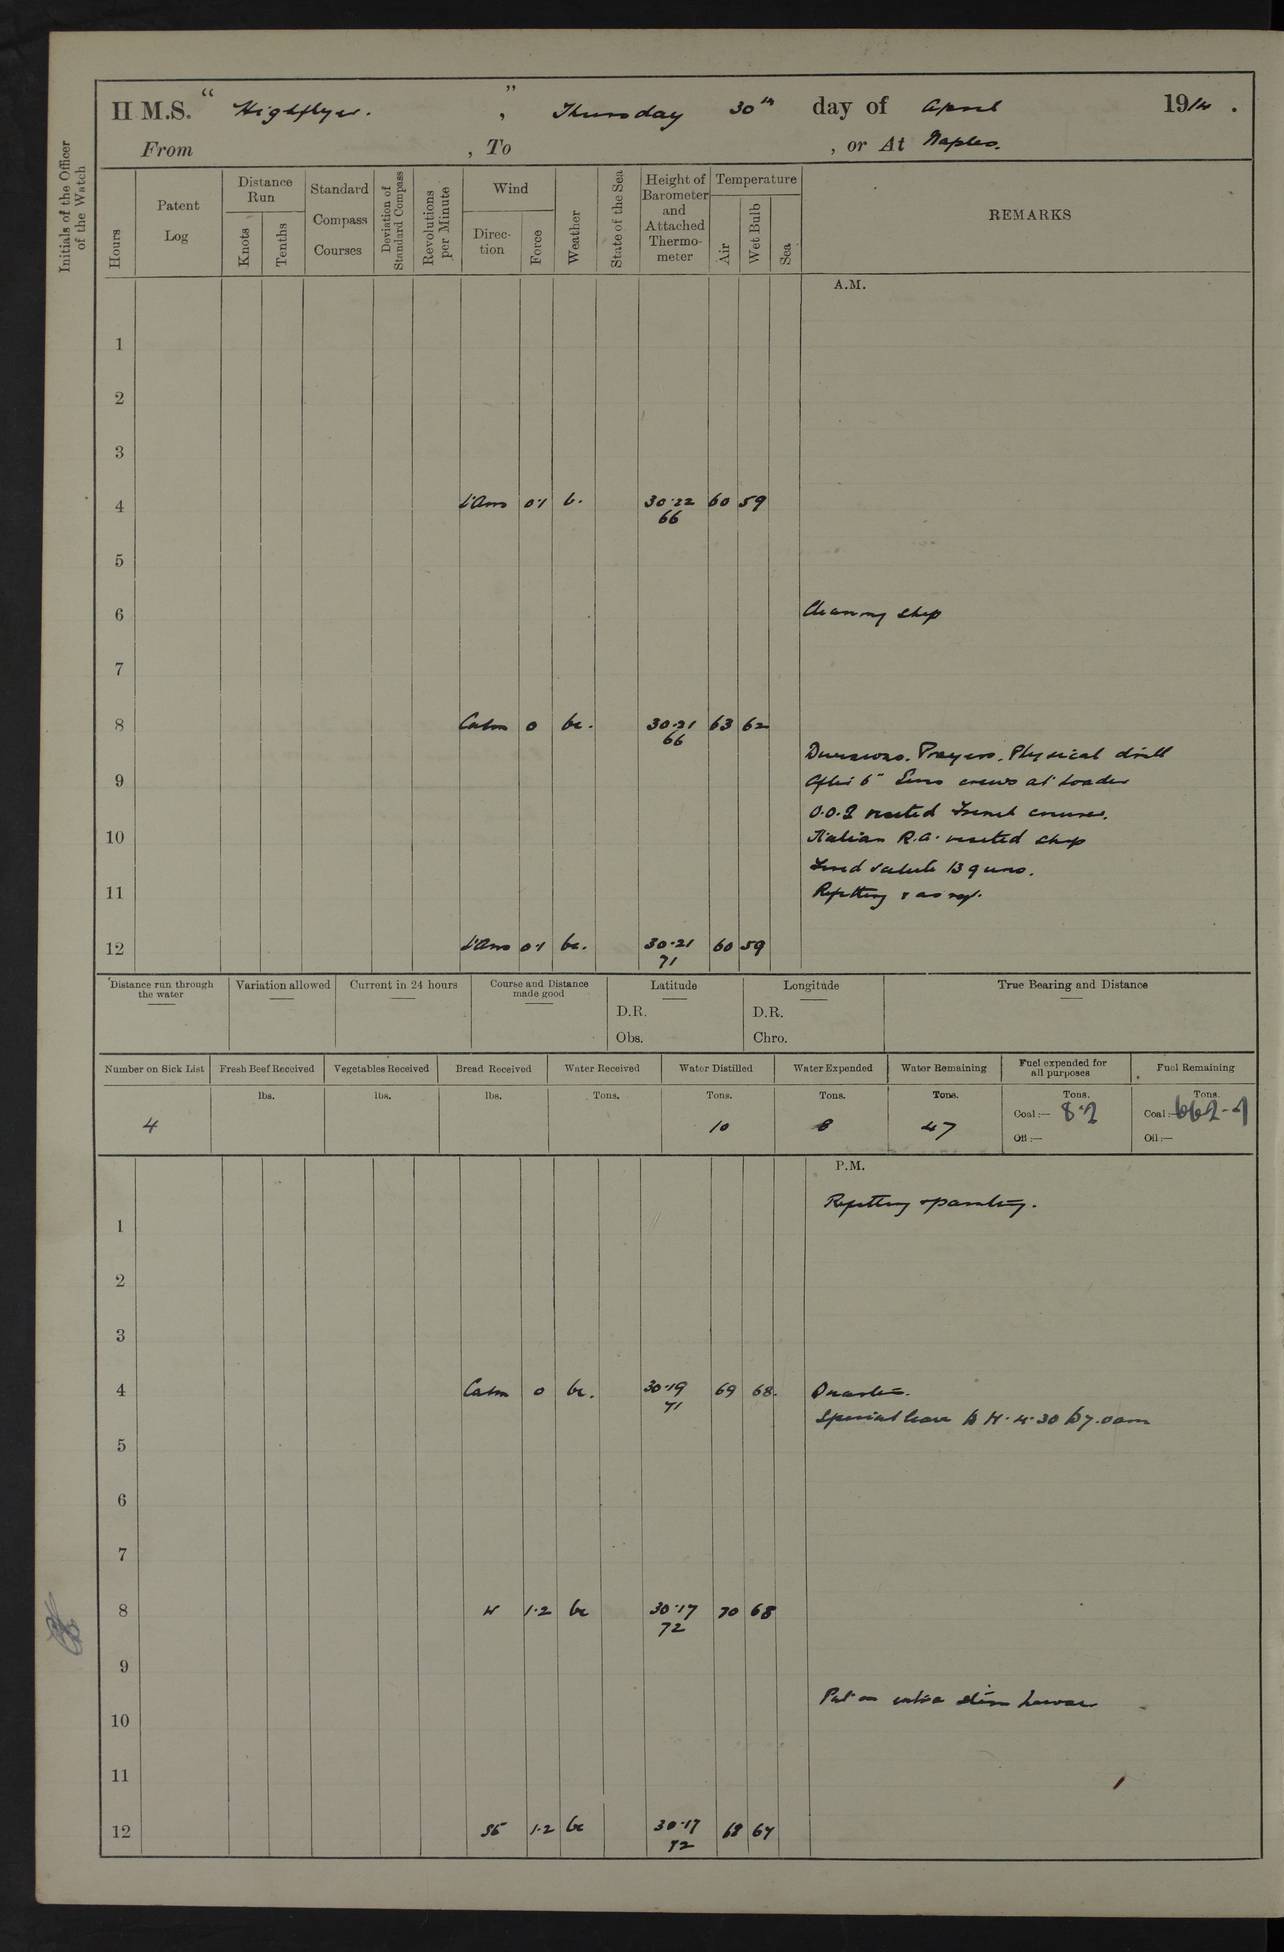 H.M.S. “ Highflyer. ” , Thursday 30th day of April 1914 .
From , To , or At Naples.
Initials of the Officer of the Watch
Hours
Patent Log
Distance Run
Knots
Tenths
Standard Compass Courses
Deviation of Standard Compass
Revolutions per Minute
Wind
Direction
Force
Weather
State of the Sea
Height of Barometer and Attached Thermometer
Temperature
Air
Wet Bulb
Sea
REMARKS
A.M.
1
2
3
4 0·1 b. 30·22 60 59
66
5
6 Cleaning ship
7
8 Calm 0 bc. 30·21 63 62
66
Divisions. Prayers. Physical drill
9 After 6" Guns crews at loader
O.O.G visited French cruiser.
10 Italian R.A. visited ship
Fired salute 13 guns.
11 Refitting & as req.
12 0·1 bc. 30·21 60 59
71
Distance run through the water
Variation allowed
Current in 24 hours
Course and Distance made good
Latitude
D.R.
Obs.
Longitude
D.R.
Chro.
True Bearing and Distance
Number on Sick List
Fresh Beef Received
Vegetables Received
Bread Received
Water Received
Water Distilled
Water Expended
Water Remaining
Fuel expended for all purposes
Fuel Remaining
lbs. lbs. lbs. Tons. Tons. Tons. Tons. Tons. Tons.
4 10 47 Coal:— 8·2 Coal:— 662-1
Oil:— Oil:—
P.M.
Refitting & painting.
1
2
3
4 Calm 0 bc. 30·19 69 68. Quarters.
71
Special leave to W. 4.30 to 7.0 am
5
6
7
8 W 1·2 bc 30·17 70 68
72
9
Put on extra stern hawser
10
11
12 SE 1·2 bc 30·17 68 67
72